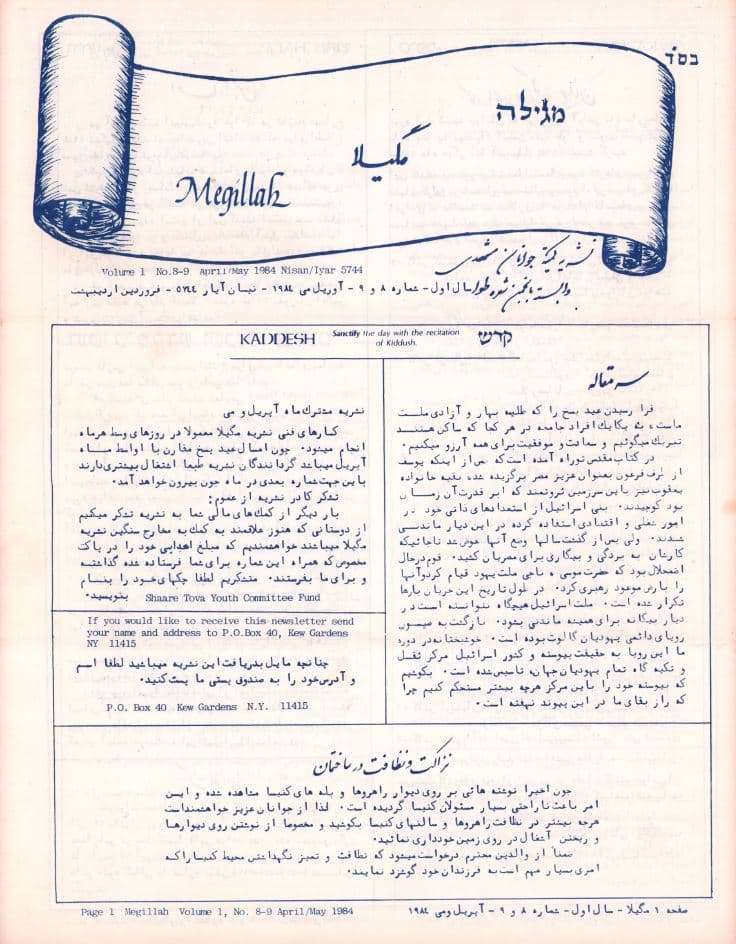 בס״ד
מגילה
مگیلا
Megillah
نشریه کمیته جوانان مشهدی
وابسته بانجمن شعره طوا
Volume 1 No.8-9 April/May 1984 Nisan/Iyar 5744
سال اول - شماره ۸ و ۹ - آوریل می ۱۹۸٤ - نیسان آیار ۵۷٤٤ - فروردین اردیبهشت
KADDESH
Sanctify the day with the recitation
of Kiddush.
קדש
سر مقاله
فرا رسیدن عید پسح را که طلیعه بهار و آزادی ملت
ماست، به یکایک افراد جامعه در هر کجا که ساکن هستند
تبریک میگوئیم و سعادت و موفقیت برای همه آرزو میکنیم.
در کتاب مقدس توراه آمده است که پس از اینکه یوسف
از طرف فرعون بعنوان عزیز مصر برگزیده شد، بقیه خانواده
یعقوب نیز باین سرزمین ثروتمند که ابر قدرت آن زمان
بود کوچیدند. بنی اسرائیل از استعدادهای ذاتی خود در
امور شغلی و اقتصادی استفاده کرده در این دیار ماندنی
شدند. ولی پس از گذشت سالها وضع آنها عوض شد تا جائیکه
کارشان به بردگی و بیگاری برای مصریان کشید. قوم در حال
اضمحلال بود که حضرت موسی، ناجی ملت یهود قیام کرد و آنها
را بارض موعود رهبری کرد. در طول تاریخ این جریان بارها
تکرار شده است. ملت اسرائیل هیچگاه نتوانسته است در
دیار بیگانه برای همیشه ماندنی بشود. بازگشت به صیون
رویای دائمی یهودیان گالوت بوده است. خوشبختانه در دوره
ما این رویا به حقیقت پیوسته و کشور اسرائیل مرکز ثقل
و تکیه گاه تمام یهودیان جهان، تاسیس شده است. بکوشیم
که پیوسته خود را باین مرکز هرچه بیشتر مستحکم کنیم چرا
که راز بقای ما در این پیوند نهفته است.
نشریه مشترک ماه آپریل و می
کارهای فنی نشریه مگیلا معمولا در روزهای وسط هرماه
انجام میشود. چون امسال عید پسح مقارن با اواسط ماه
آپریل میباشد گردانندگان نشریه طبعا اشتغال بیشتری دارند
باین جهت شماره بعدی در ماه جون بیرون خواهد آمد.
تشکر کادر نشریه از عموم:
بار دیگر از کمک‌های مالی شما به نشریه تشکر میکنیم
از دوستانی که هنوز علاقمند به کمک به مخارج سنگین نشریه
مگیلا میباشند خواهشمندیم که مبلغ اهدایی خود را در پاکت
مخصوص که همراه این شماره برای شما فرستاده شده گذاشته
و برای ما بفرستند. متشکریم لطفا چکهای خود را بنام
Shaare Tova Youth Committee Fund بنویسید.
If you would like to receive this newsletter send
your name and address to P.O.Box 40, Kew Gardens
NY 11415
چنانچه مایل بدریافت این نشریه میباشید لطفا اسم
و آدرس خود را به صندوق پستی ما پست کنید.
P.O. Box 40 Kew Gardens N.Y. 11415
نزاکت و نظافت در ساختمان
چون اخیرا نوشته هائی بر روی دیوار راهروها و پله های کنیسا مشاهده شده و این
امر باعث ناراحتی بسیار مسئولان کنیسا گردیده است. لذا از جوانان عزیز خواهشمند است
هرچه بیشتر در نظافت راهروها و سالنهای کنیسا بکوشید و مخصوصا از نوشتن روی دیوارها
و ریختن آشغال در روی زمین خودداری نمائید.
ضمناً از والدین محترم درخواست میشود که نظافت و تمیز نگهداشتن محیط کنیسا را که
امری بسیار مهم است به فرزندان خود گوشزد نمایند.
Page 1 Megillah Volume 1, No. 8-9 April/May 1984
صفحه ۱ مگیلا - سال اول - شماره ۸ و ۹ - آپریل و می ۱۹۸٤